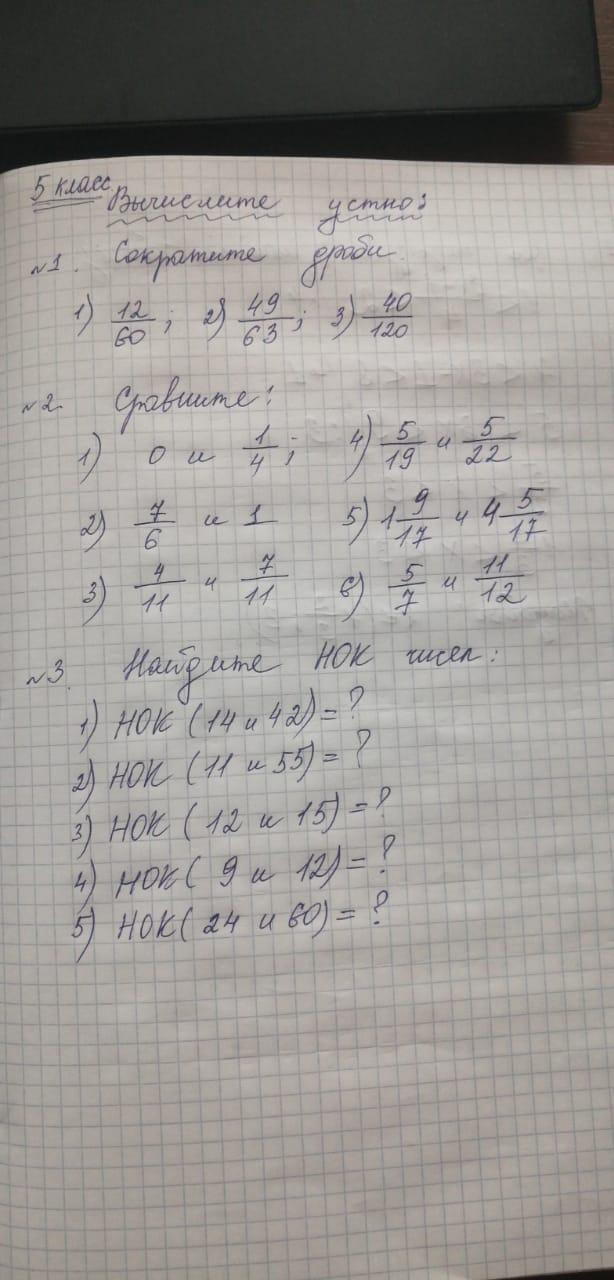 5 класс
Вычислите устно:
№1. Сократите дроби.
1) 12/60; 2) 49/63; 3) 40/120
№2. Сравните:
1) 0 и 1/4; 4) 5/19 и 5/22
2) 7/6 и 1 5) 1 9/17 и 4 5/17
3) 4/11 и 7/11 6) 5/7 и 11/12
№3. Найдите НОК чисел:
1) НОК (14 и 42) = ?
2) НОК (11 и 55) = ?
3) НОК (12 и 15) = ?
4) НОК (9 и 12) = ?
5) НОК (24 и 60) = ?